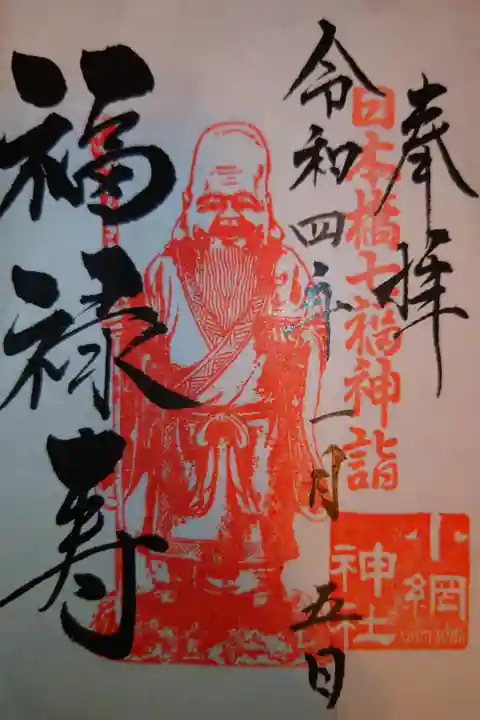 奉拝
日本橋七福神詣
小網
神社
令和四年一月五日
福禄寿